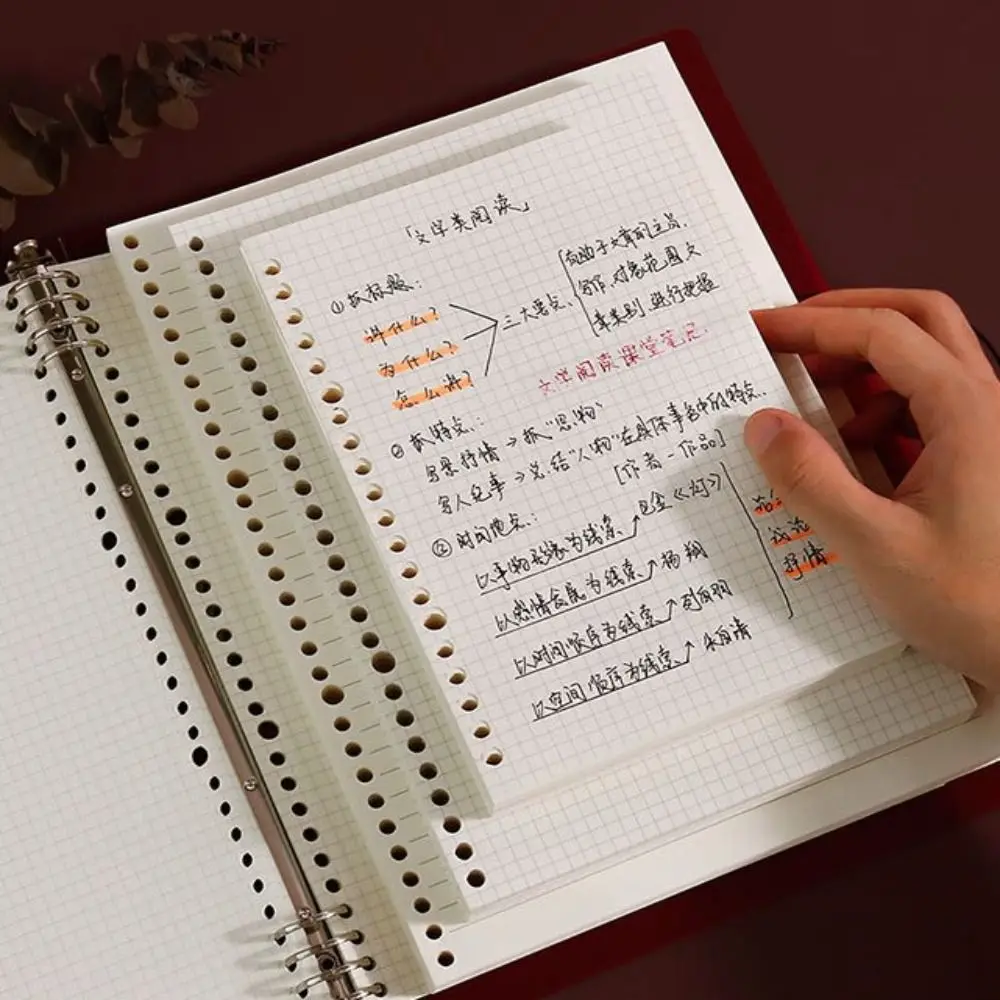 「文学类阅读」
①抓标题:
讲什么?
为什么?
怎么讲?
三大要点
有助于文章的立意.
写作,对象范围文
章类别,进行把握
文学阅读课堂笔记.
②抓特点.:
写景抒情→抓"景物"
写人记事→总结"人物"在具体事名中的特点..
[作者-作品]
② 时间地点.:
以事物形象为线索↗巴金《灯》
以感情发展为线索↗杨朔
以时间顺序为线索↗刘白羽
以空间顺序为线索↗朱自清
议论
抒情